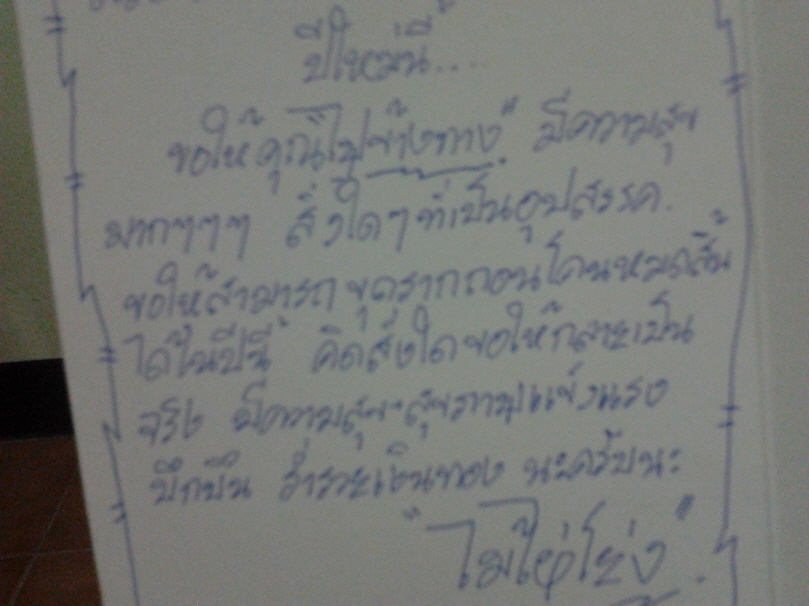 ปีใหม่นี้....
ขอให้คุณ "ไผ่ข้างทาง" มีความสุข
มากๆๆๆ สิ่งใดๆที่เป็นอุปสรรค.
ขอให้สามารถขุดรากถอนโคนหมดสิ้น
ได้ในปีนี้ คิดสิ่งใดขอให้กลายเป็น
จริง มีความสุข สุขภาพแข็งแรง
บึกบึน ร่ำรวยเงินทอง นะครับนะ